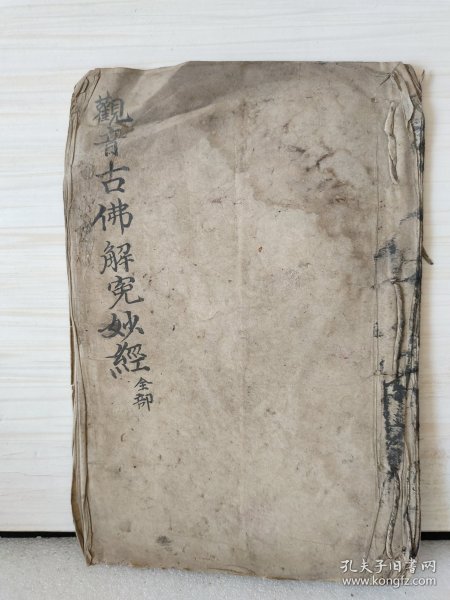 觀音古佛解冤妙經
全部
孔夫子旧书网
www.kongfz.com